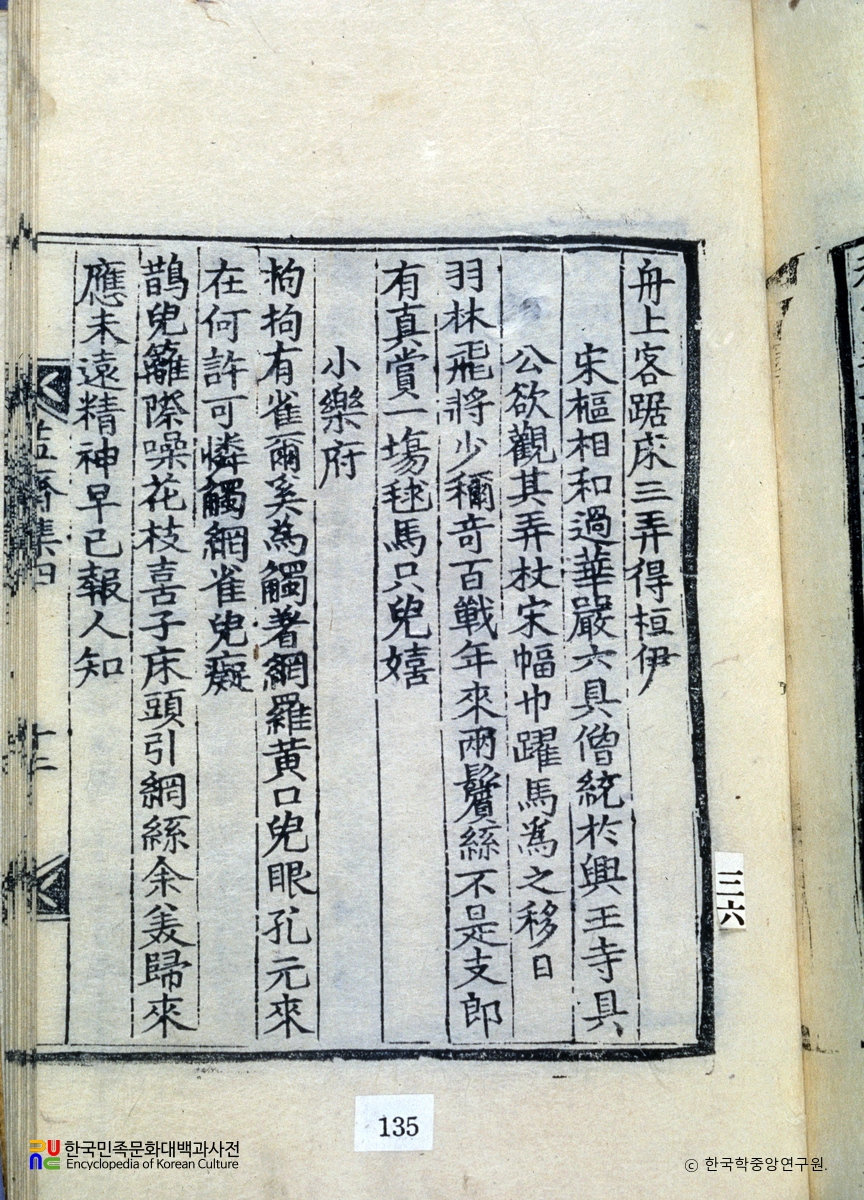 舟上客踞床三弄得桓伊
宋樞相和過華嚴六具僧統於興王寺具
公欲觀其弄杖宋幅巾躍馬爲之移日
羽林飛將少穪奇百戰年來兩鬢絲不是支郎
有真賞一塲毬馬只兒嬉
小樂府
拘拘有雀爾奚為觸著網羅黃口兒眼孔元來
在何許可憐觸網雀兒癡
鵲兒籬際噪花枝喜子床頭引網絲余羙歸來
應未遠精神早已報人知
益齋集四
十二
三六
135
한국민족문화대백과사전
Encyclopedia of Korean Culture
ⓒ 한국학중앙연구원.